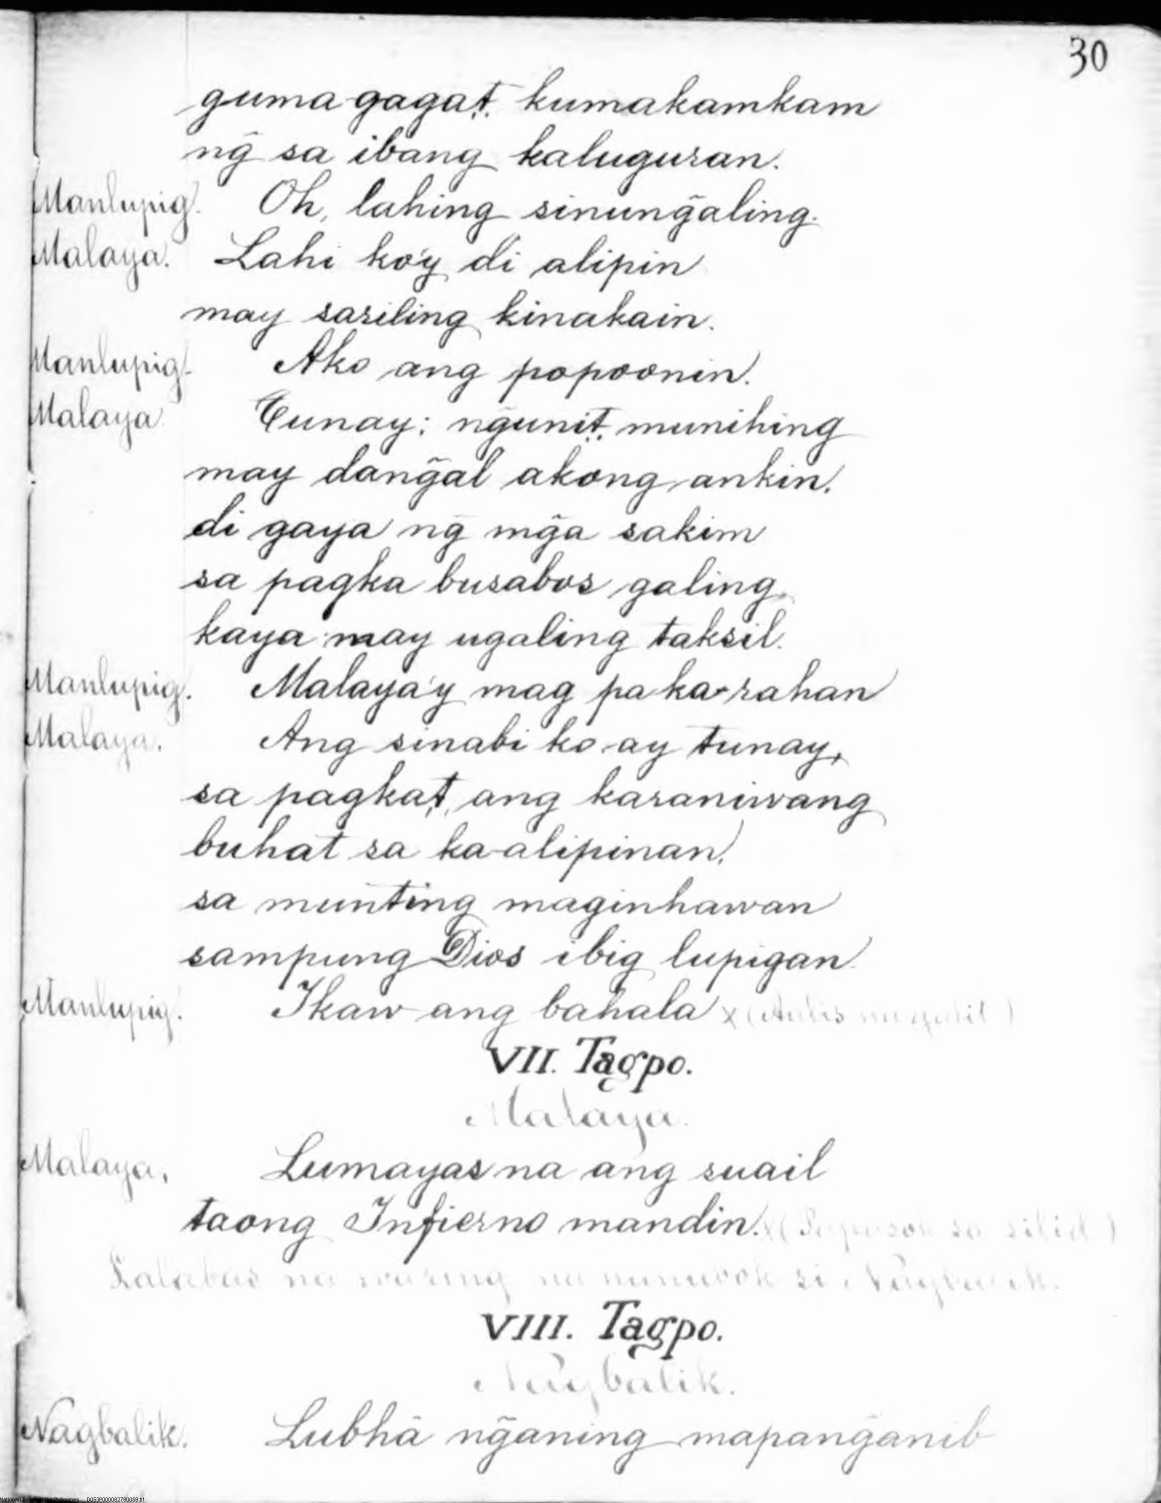 30
guma gagat, kumakamkam
ng̃ sa ibang kaluguran.
Manlupig. Oh, lahing sinung̃aling.
Malaya. Lahi ko'y di alipin
may sariling kinakain.
Manlupig. Ako ang popoonin.
Malaya. Tunay; ng̃unit, munihing
may dang̃al akong ankin,
di gaya ng̃ mg̃a sakim
sa pagka busabos galing
kaya may ugaling taksil.
Manlupig. Malaya'y mag pa ka-rahan
Malaya. Ang sinabi ko ay tunay,
sa pagkat, ang karaniwang
buhat sa ka-alipinan,
sa munting maginhawan
sampung Dios ibig lupigan.
Manlupig. Ikaw ang bahala x (Aalis na galit)
VII. Tagpo.
Malaya.
Malaya, Lumayas na ang suail
taong Infierno mandin. x (Papasok sa silid)
Lalabas na waring na nunubok si Nagbalik.
VIII. Tagpo.
Nagbalik.
Nagbalik. Lubhâ ng̃aning mapang̃anib